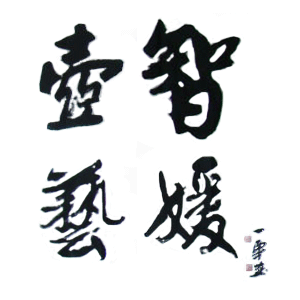 智媛
壺藝